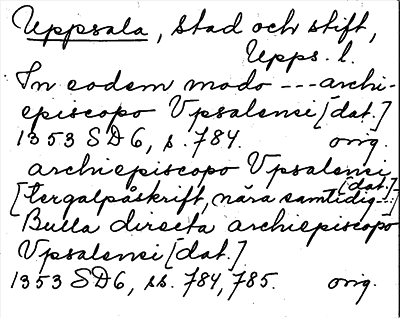 Uppsala, stad och stift,
Upps. l.
In eodem modo --- archi-
episcopo Vpsalensi [dat.]
1353 SD6, s. 784. orig.
archiepiscopo Vpsalensi
[dat.]
[tergalpåskrift, nära samtidig--:]
Bulla directa archiepiscopo
Vpsalensi [dat.]
1353 SD6, ss. 784, 785. orig.